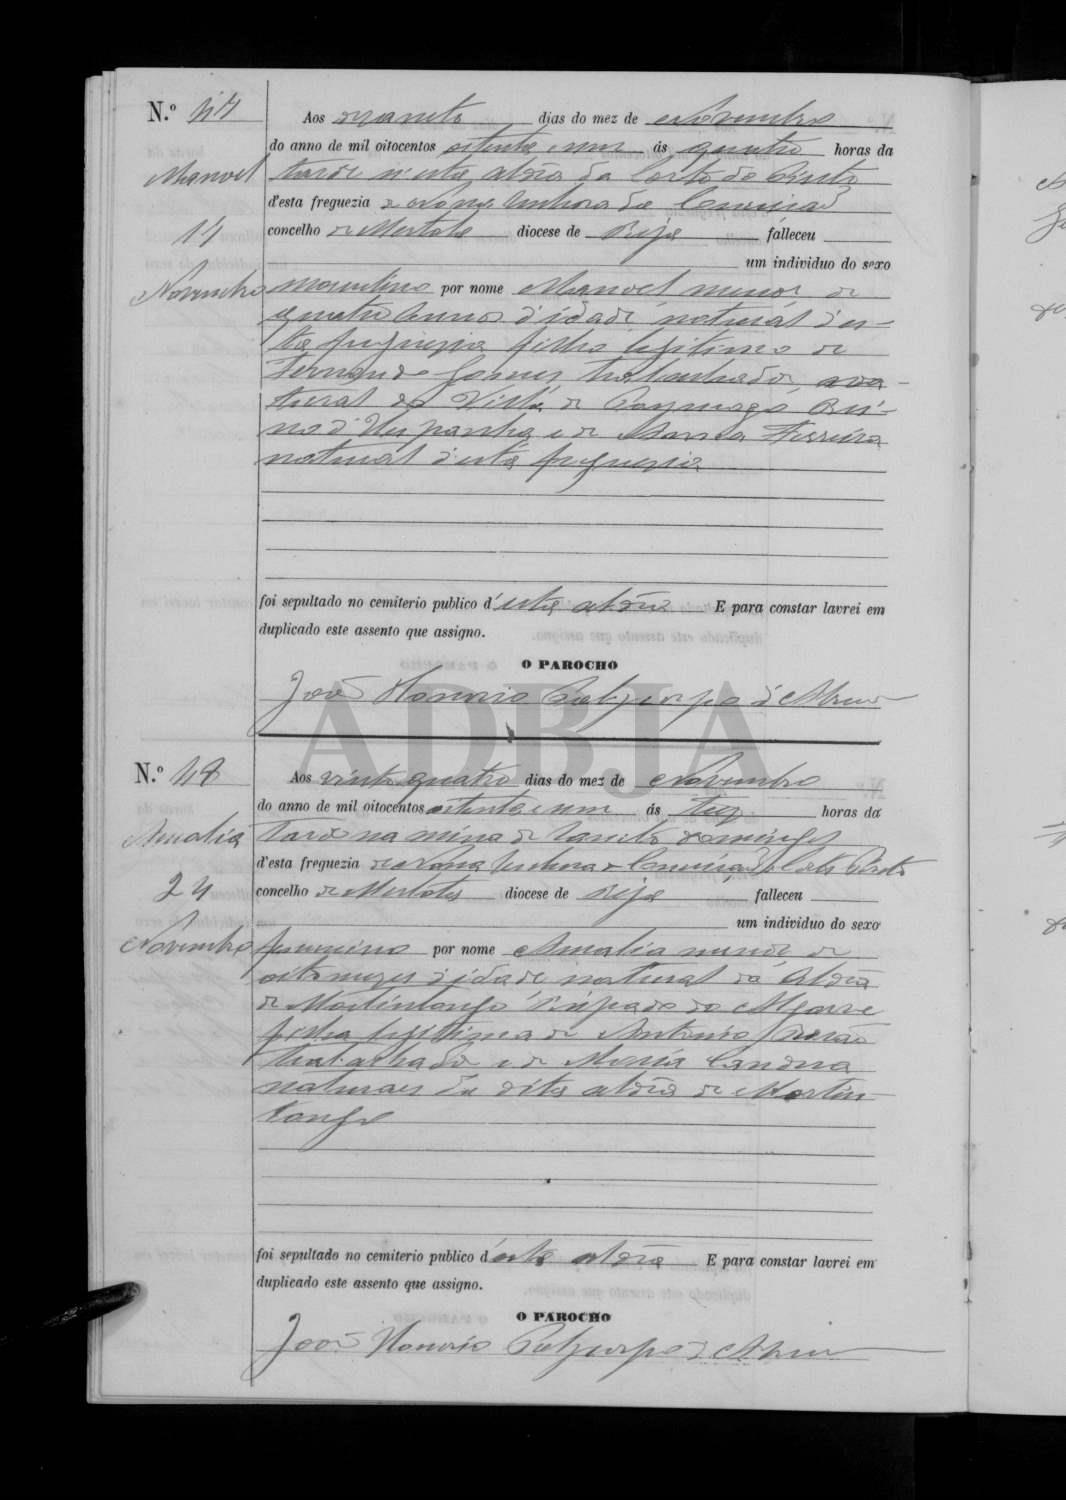 N.º 47
Aos dias do mez de Novembro
do anno de mil oitocentos oitenta e um ás quatro horas da
Manoel
tarde n'esta aldêa da Corte do Pinto
d'esta freguezia de Nossa Senhora da Conceicão
14
concelho de Mertola diocese de Beja falleceu
um individuo do sexo
Novembro
masculino por nome Manoel menor de
quatro annos d'idade natural d'es-
ta freguezia filho legitimo de
Fernando Gomes trabalhador, na-
tural da Villa de Paymogo Rei-
no d'Hespanha e de Maria Ferreira
natural d'esta freguezia
foi sepultado no cemiterio publico d'esta aldêa E para constar lavrei em
duplicado este assento que assigno.
O PAROCHO
José Honorio d'Abreu
ADBJA
N.º 48
Aos vinte quatro dias do mez de Novembro
do anno de mil oitocentos oitenta e um ás tres horas da
Amalia
tarde na mina de São Domingos
d'esta freguezia de Nossa Senhora da Conceicão da Corte Pinto
24
concelho de Mertola diocese de Beja falleceu
um individuo do sexo
Novembro
femenino por nome Amalia menor de
oito mezes d'idade natural da Aldêa
de Martinlongo Bispado do Algarve
filha legitima de Antonio
trabalhador e de Maria
naturaes da dita aldêa de Martin-
longo
foi sepultado no cemiterio publico d'esta aldêa E para constar lavrei em
duplicado este assento que assigno.
O PAROCHO
José Honorio d'Abreu